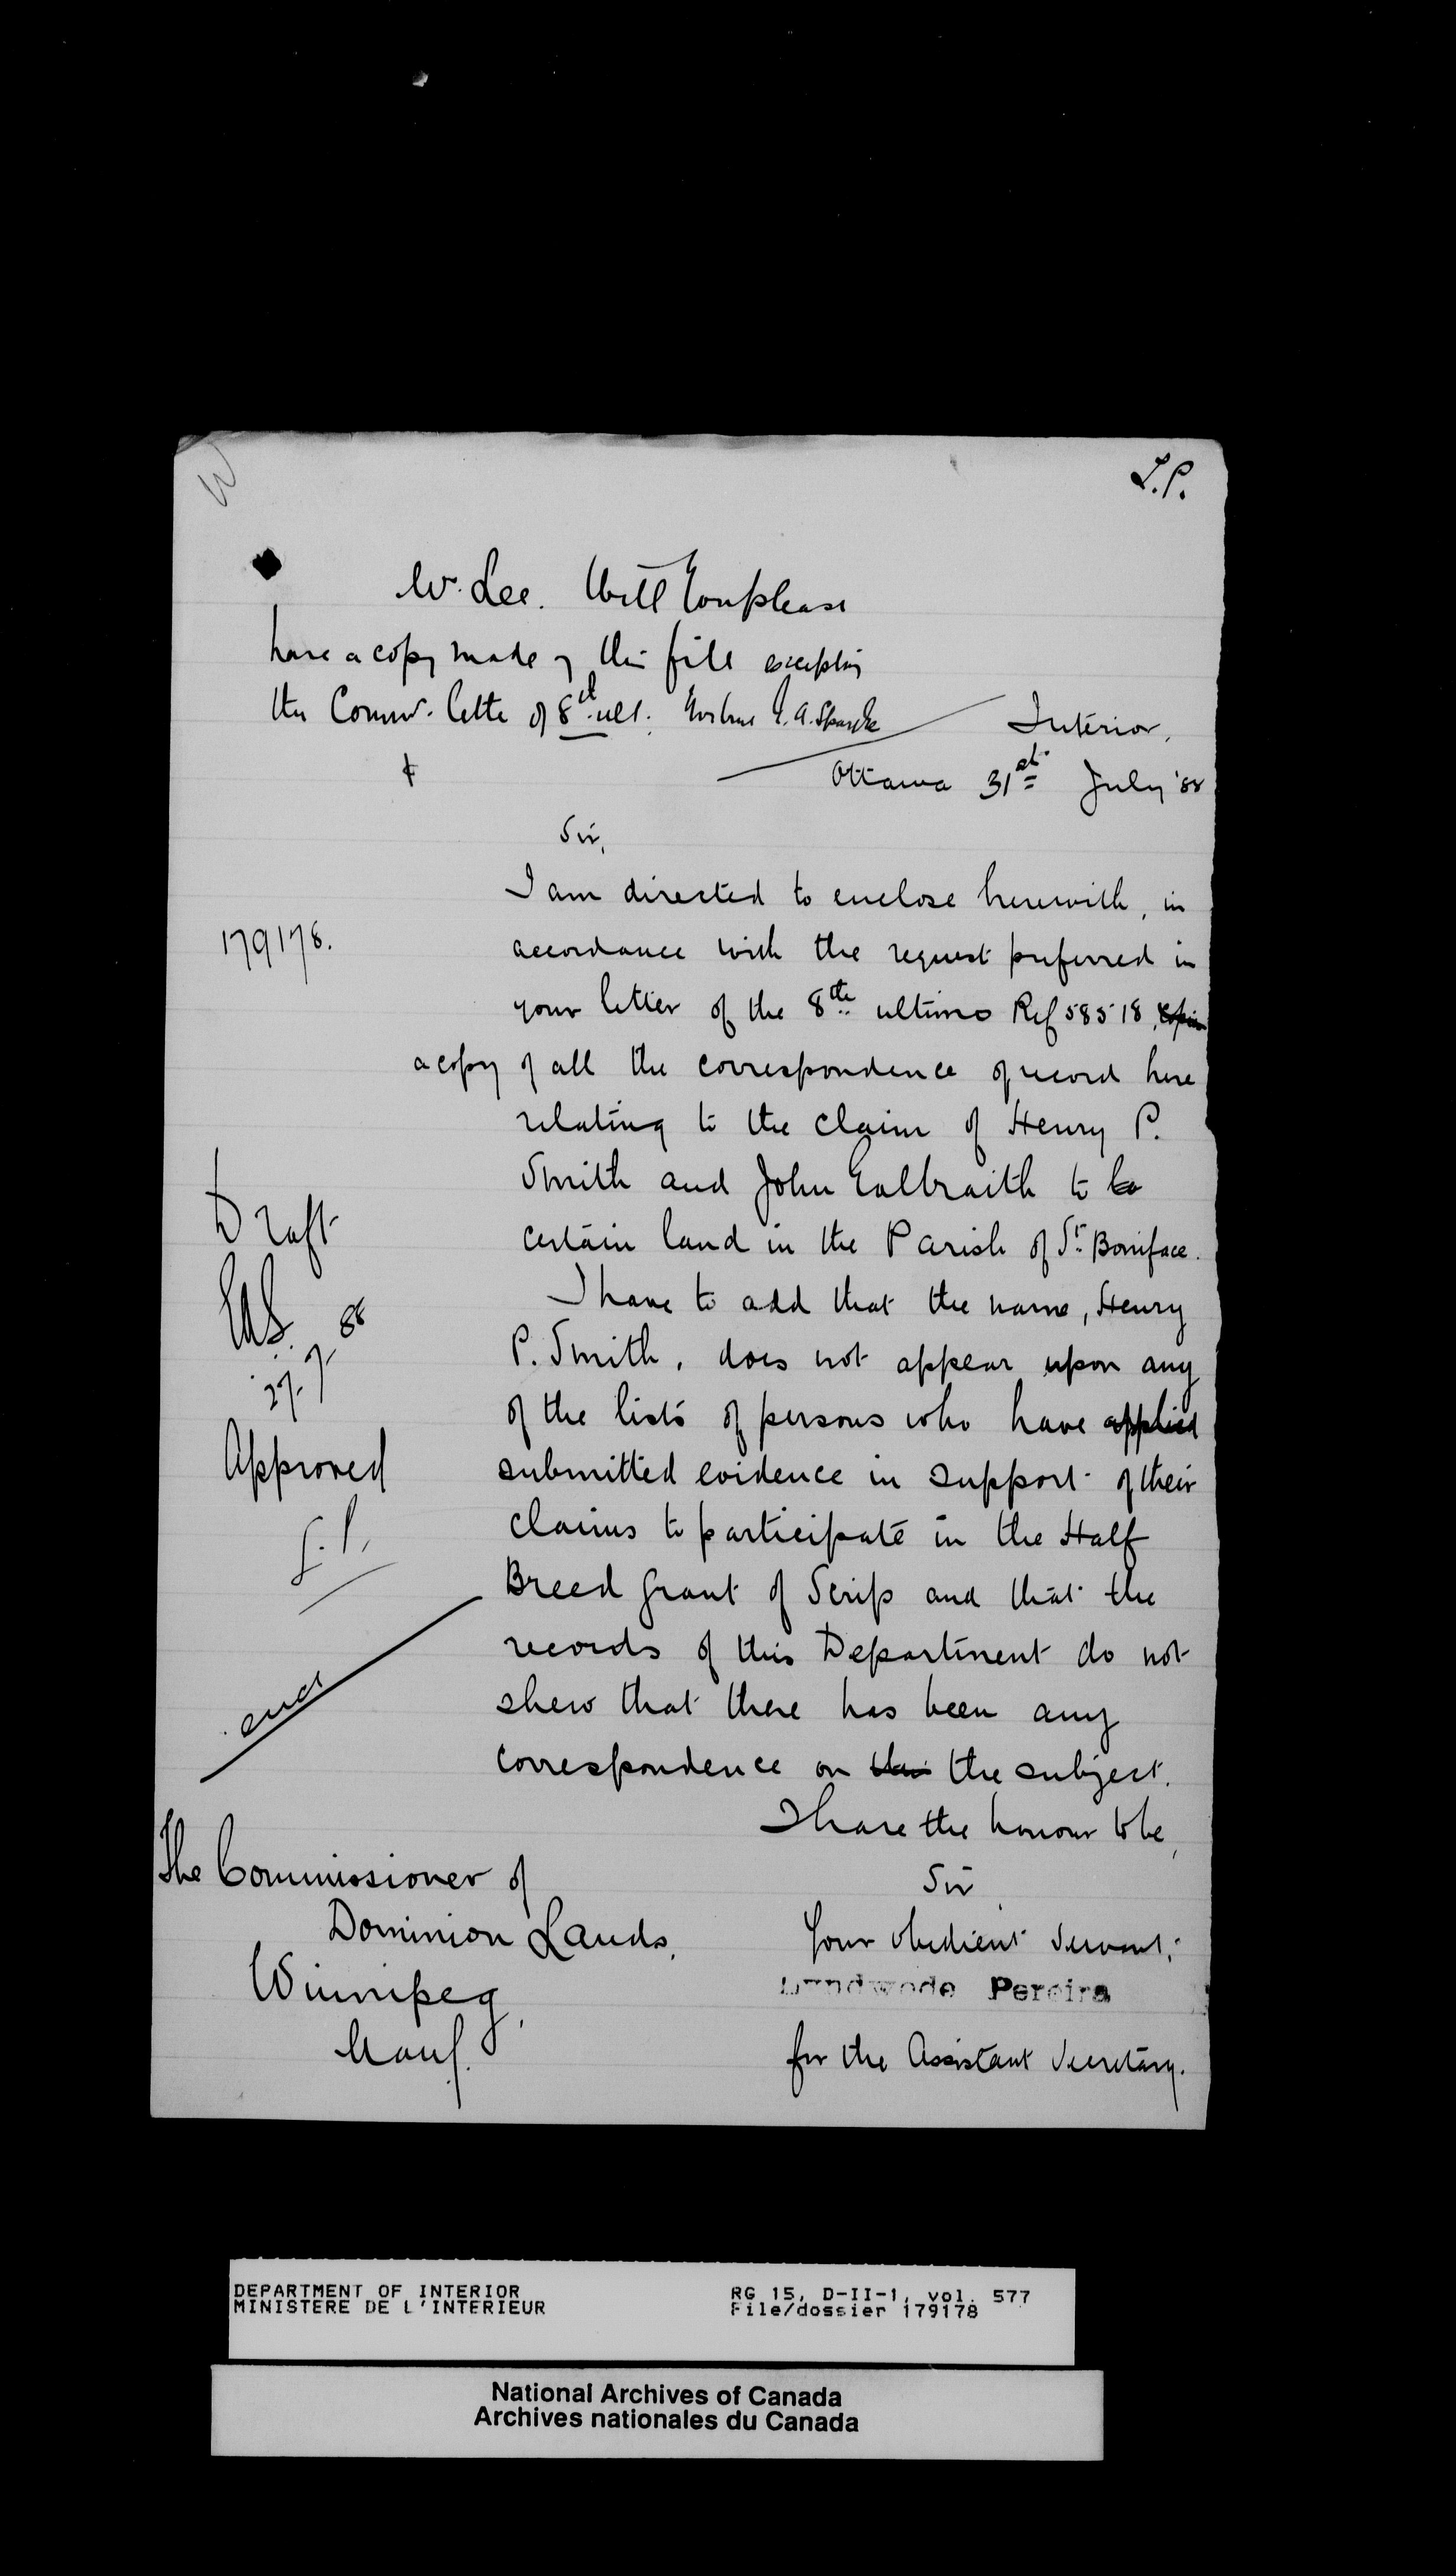 W
L.P.
Mr. Lee. Will you please
have a copy made of this file excepting
the Commr. letter of 8th ult.
Interior,
Ottawa 31st July '88
Sir,
I am directed to enclose herewith, in
179178.
accordance with the request preferred in
your letter of the 8th ultimo Ref 58518, copies
a copy of all the correspondence of record here
relating to the claim of Henry P.
Smith and John Galbraith to to
certain land in the Parish of St. Boniface.
I have to add that the name, Henry
P. Smith, does not appear upon any
of the lists of persons who have applied
submitted evidence in support of their
claims to participate in the Half
Breed grant of Scrip and that the
records of this Department do not
shew that there has been any
correspondence on the subject.
I have the honour to be,
Sir
Your obedient servant,
Lyndwode Pereira
for the Assistant Secretary.
Draft
27.7.88
Approved
L.P.
encl
The Commissioner of
Dominion Lands,
Winnipeg,
Man.
DEPARTMENT OF INTERIOR
MINISTERE DE L'INTERIEUR
RG 15, D-II-1, vol. 577
File/dossier 179178
National Archives of Canada
Archives nationales du Canada